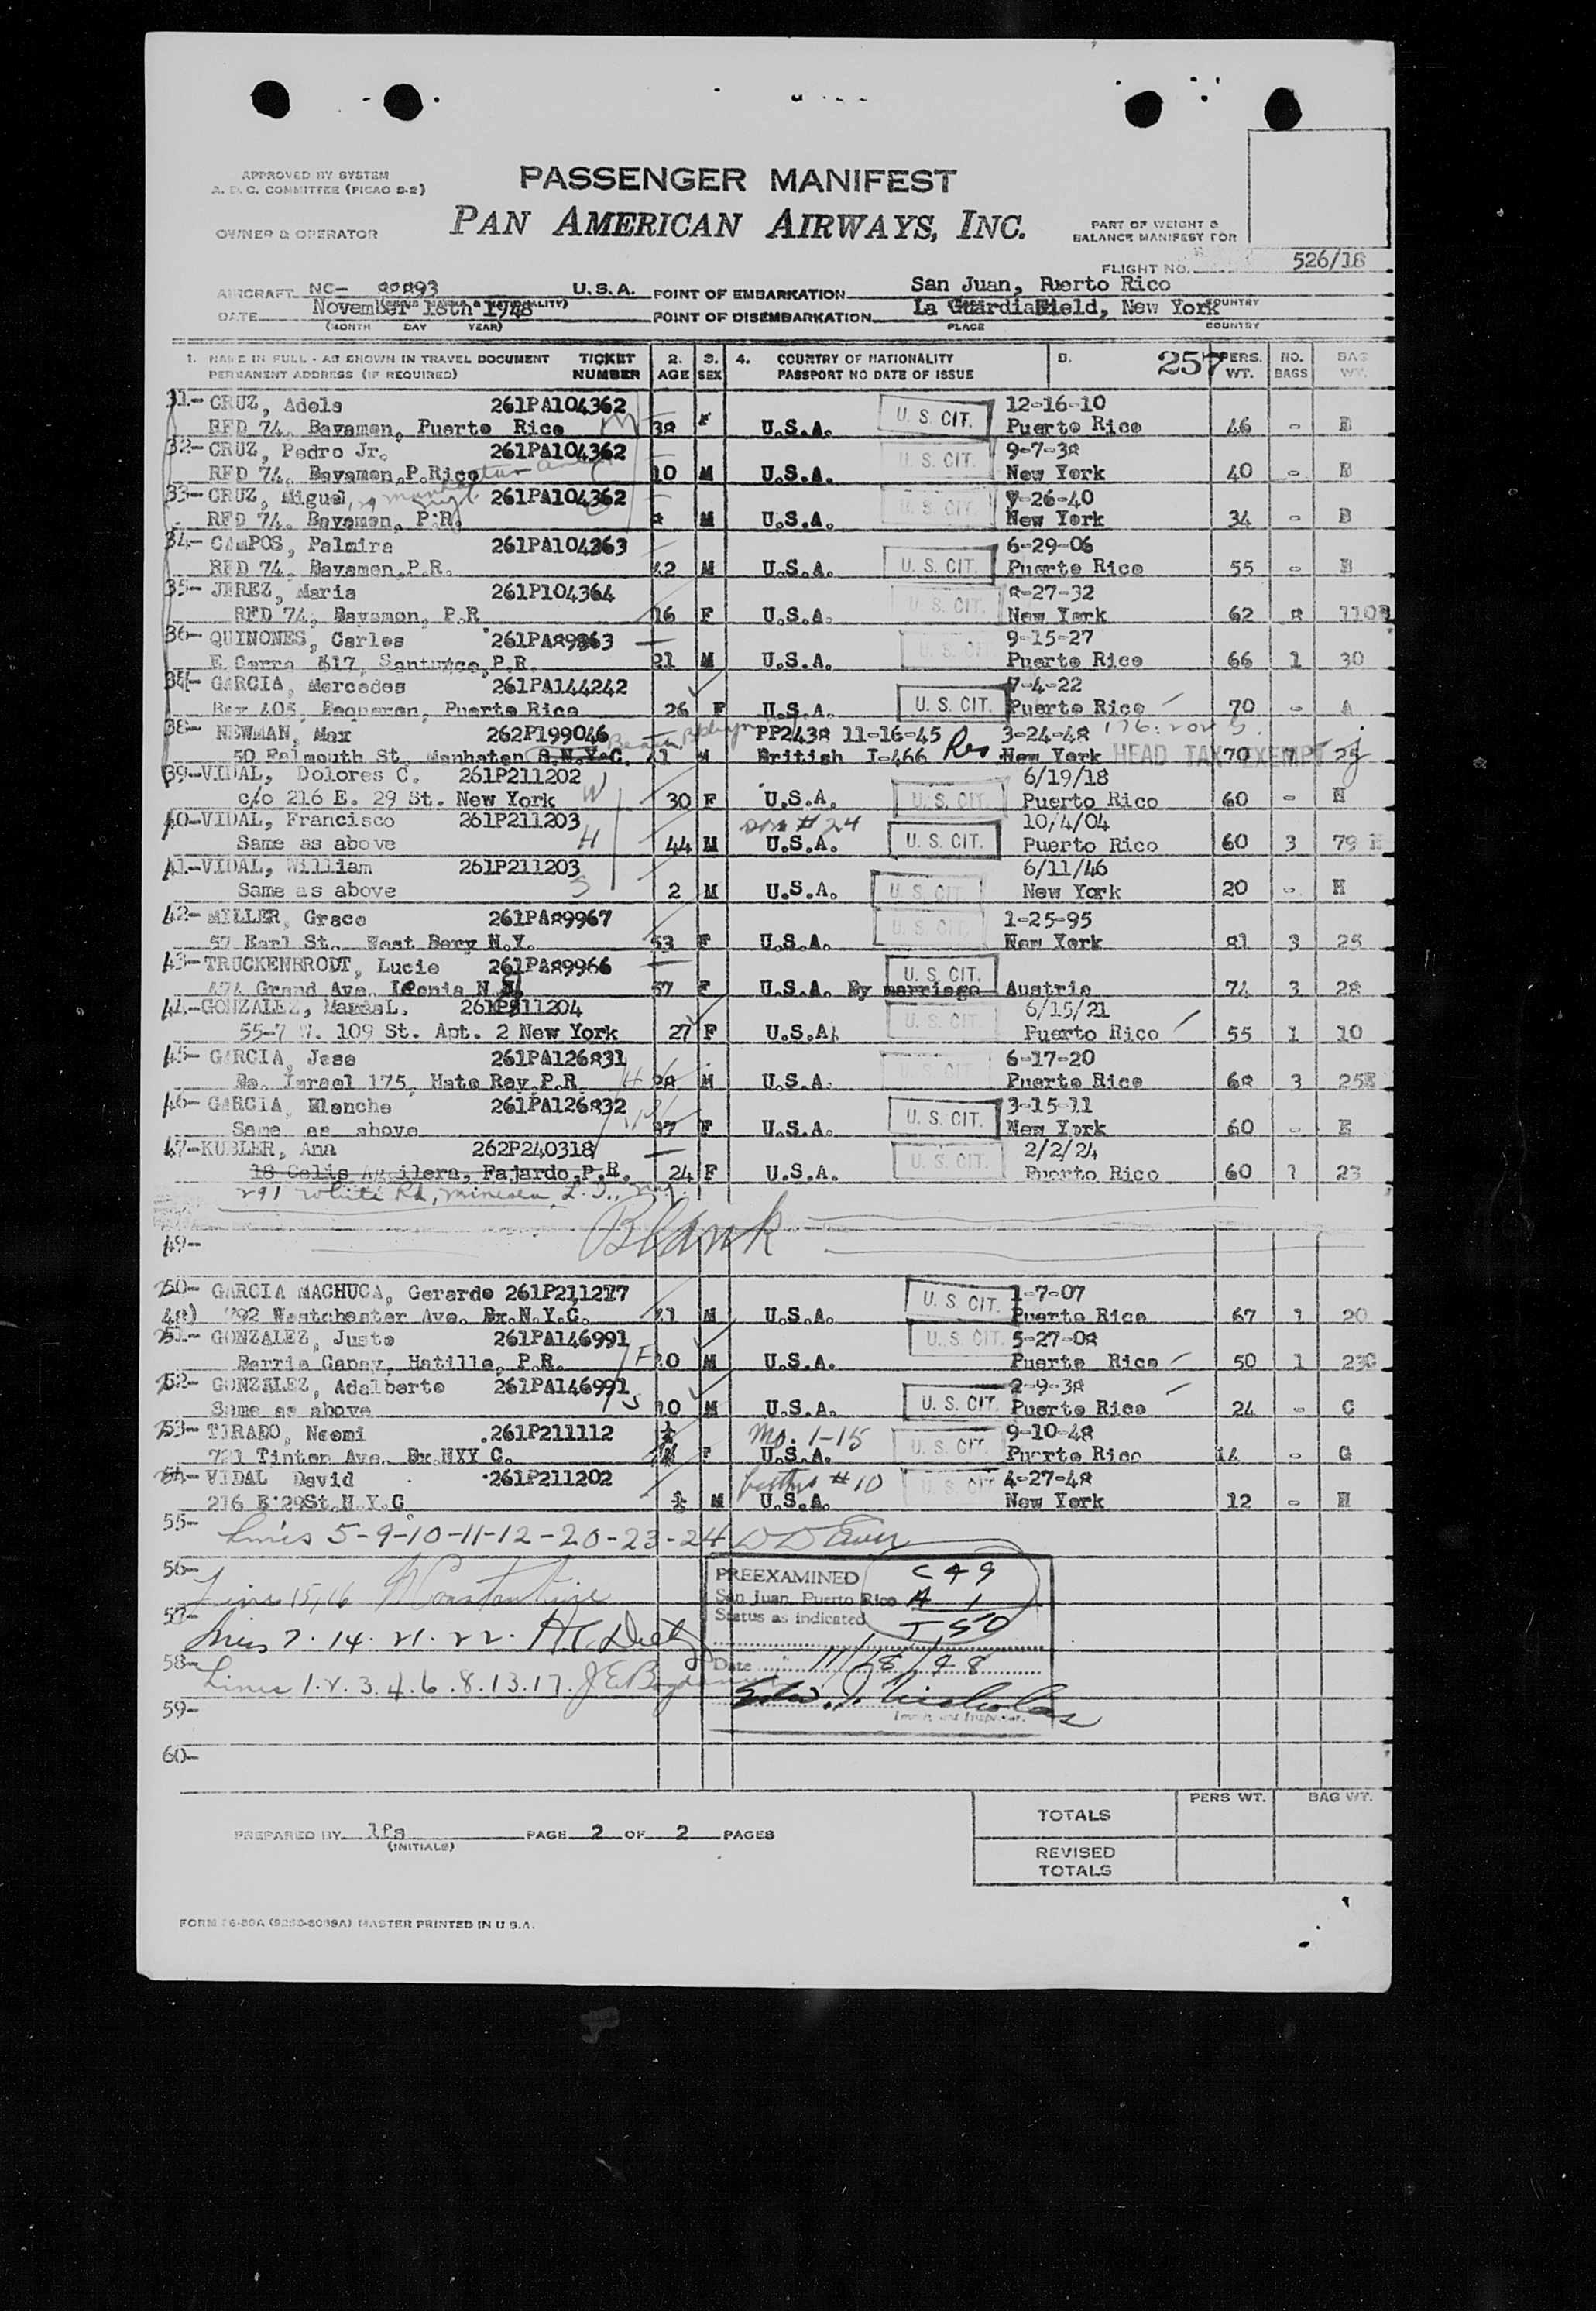 APPROVED BY SYSTEM
A. D. C. COMMITTEE (PICAO S-2)
PASSENGER MANIFEST
PAN AMERICAN AIRWAYS, INC.
OWNER & OPERATOR
PART OF WEIGHT &
BALANCE MANIFEST FOR
FLIGHT NO. 526/18
AIRCRAFT NC- U.S.A. POINT OF EMBARKATION San Juan, Puerto Rico
DATE November 18th 1948 POINT OF DISEMBARKATION La Guardia Field, New York COUNTRY
(MONTH DAY YEAR) PLACE COUNTRY
1. NAME IN FULL - AS SHOWN IN TRAVEL DOCUMENT TICKET 2. 3. 4. COUNTRY OF NATIONALITY 5. 257 PERS. NO. BAG
PERMANENT ADDRESS (IF REQUIRED) NUMBER AGE SEX PASSPORT NO DATE OF ISSUE WT. BAGS WT.
31- CRUZ, Adela 261PA104362 U. S. CIT. 12-16-10
RFD 74, Bayamon, Puerto Rico 38 F U.S.A. Puerto Rico 46 - B
32- CRUZ, Pedro Jr. 261PA104362 U. S. CIT. 9-7-38
RFD 74, Bayamon, P.Rico 10 M U.S.A. New York 40 - B
33- CRUZ, Miguel 261PA104362 U. S. CIT. 7-26-40
RFD 74, Bayamon, P.R. M U.S.A. New York 34 - B
34- CAMPOS, Palmira 261PA104363 6-29-06
RFD 74, Bayamon, P.R. 42 M U.S.A. U. S. CIT. Puerto Rico 55 - B
35- JEREZ, Maria 261P104364 8-27-32
RFD 74, Bayamon, P.R 16 F U.S.A. U. S. CIT. New York 62 8 110B
36- QUINONES, Carlos 261PA89863 9-15-27
E. Cerra 617, Santurce, P.R. 21 M U.S.A. U. S. CIT Puerto Rico 66 1 30
37- GARCIA, Mercedes 261PA144242 7-4-22
Box 405, Boqueron, Puerto Rico 26 F U.S.A. U. S. CIT. Puerto Rico 70 - A
38- NEWMAN, Max 262P199046 PP2438 11-16-45 3-24-48
50 Falmouth St. Manhaten B.N.Y.C. 41 M British I-466 Res New York HEAD TAX EXEMPT 70 1 25
39-VIDAL, Dolores C. 261P211202 6/19/18
c/o 216 E. 29 St. New York W 30 F U.S.A. U. S. CIT. Puerto Rico 60 - H
40-VIDAL, Francisco 261P211203 son #24 10/4/04
Same as above H 44 M U.S.A. U. S. CIT. Puerto Rico 60 3 79 H
41-VIDAL, William 261P211203 6/11/46
Same as above S 2 M U.S.A. U. S. CIT. New York 20 - H
42- MILLER, Grace 261PA89967 U. S. CIT. 1-25-95
57 Earl St. East Bery N.Y. 53 F U.S.A. New York 81 3 25
43- TRUCKENBRODT, Lucie 261PA89966 U. S. CIT.
474 Grand Ave. Leonia N.J. 57 F U.S.A. By marriage Austria 74 3 28
44-GONZALEZ, L. 261P211204 U. S. CIT. 6/15/21
55-7 W. 109 St. Apt. 2 New York 27 F U.S.A. Puerto Rico 55 1 10
45- GARCIA, Jose 261PA126831 U. S. CIT. 6-17-20
Bo. Israel 175, Hato Rey P.R. H 28 M U.S.A. Puerto Rico 68 3 25E
46- GARCIA, Blanche 261PA126832 U. S. CIT. 3-15-11
Same as above 37 F U.S.A. New York 60 - E
47-KUBLER, Ana 262P240318 2/2/24
18 Celis Aguilera, Fajardo, P.R. 24 F U.S.A. U. S. CIT. Puerto Rico 60 1 23
291 White Rd, Mineola, L.I., N.Y.
49- Blank
50- GARCIA MACHUCA, Gerardo 261P211217 U. S. CIT. 1-7-07
48) 792 Westchester Ave. Bx.N.Y.C. 41 M U.S.A. Puerto Rico 67 1 20
51- GONZALEZ, Justo 261PA146991 U. S. CIT. 5-27-08
Barrio Capay, Hatillo, P.R. F 40 M U.S.A. Puerto Rico 50 1 23C
52- GONZALEZ, Adalberto 261PA146991 2-9-38
Same as above S 10 M U.S.A. U. S. CIT. Puerto Rico 24 - C
53- TIRADO, Noemi 261P211112 Mo. 1-15 9-10-48
721 Tinton Ave. Bx.NYC. F U.S.A. U. S. CIT. Puerto Rico 14 - G
54- VIDAL David 261P211202 #10 4-27-48
216 E 29St. N Y C M U.S.A. U. S. CIT New York 12 - H
55- Lines 5-9-10-11-12-20-23-24
56- Lines 15,16 Constantine
57- Lines 7. 14. 21. 22.
58- Lines 1. 2. 3. 4. 6. 8. 13. 17.
PREEXAMINED C 49
San Juan, Puerto Rico A 1
Status as indicated T 50
Date 11/18/48
Immigrant Inspector.
59-
60-
PERS WT. BAG WT.
TOTALS
PREPARED BY PAGE 2 OF 2 PAGES
(INITIALS)
REVISED
TOTALS
MASTER PRINTED IN U S.A.